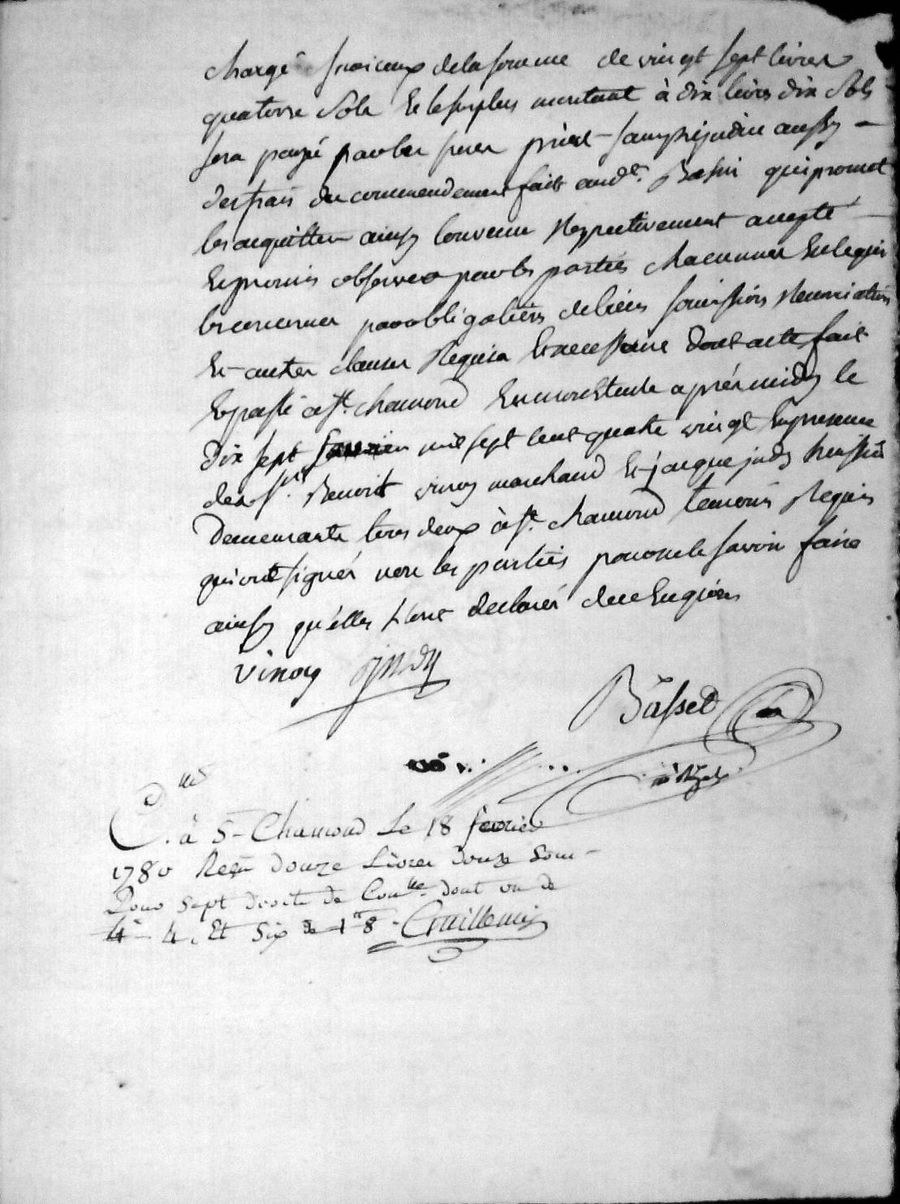 chargé pour iceux de la somme de vingt sept livres
quatorze sols et le surplus montant à dix livres dix sols
sera payé par les sans préjudice aussy
des frais du commendement fait aud. qui promet
les acquitter ainsy convenu respectivement accepté
et promis observer par les parties chacunner en le quis
les concerner par obligations de biens soumissions renonciations
et autter clauses requise et necessaire dont acte fait
et passé a St. chamond en mon etude a prés midy le
dix sept fevrier mil sept cent quatre vingt en presence
des Sr. Benoit vinoy marchand et jacque judy huissier
demeurants tous deux à St. chamond temoins requis
qui ont signér non les parties pour ne le savoir faire
ainsy qu'elles l'ont declaré de ce enquises
vinoy judy
Bâsset
C. à St Chamond Le 18 fevrier
1780 Reçu douze Livres douze sous
Pour sept droits de Con.lle dont un de
4lt 4s Et Six de 1lt 8s Guillemin